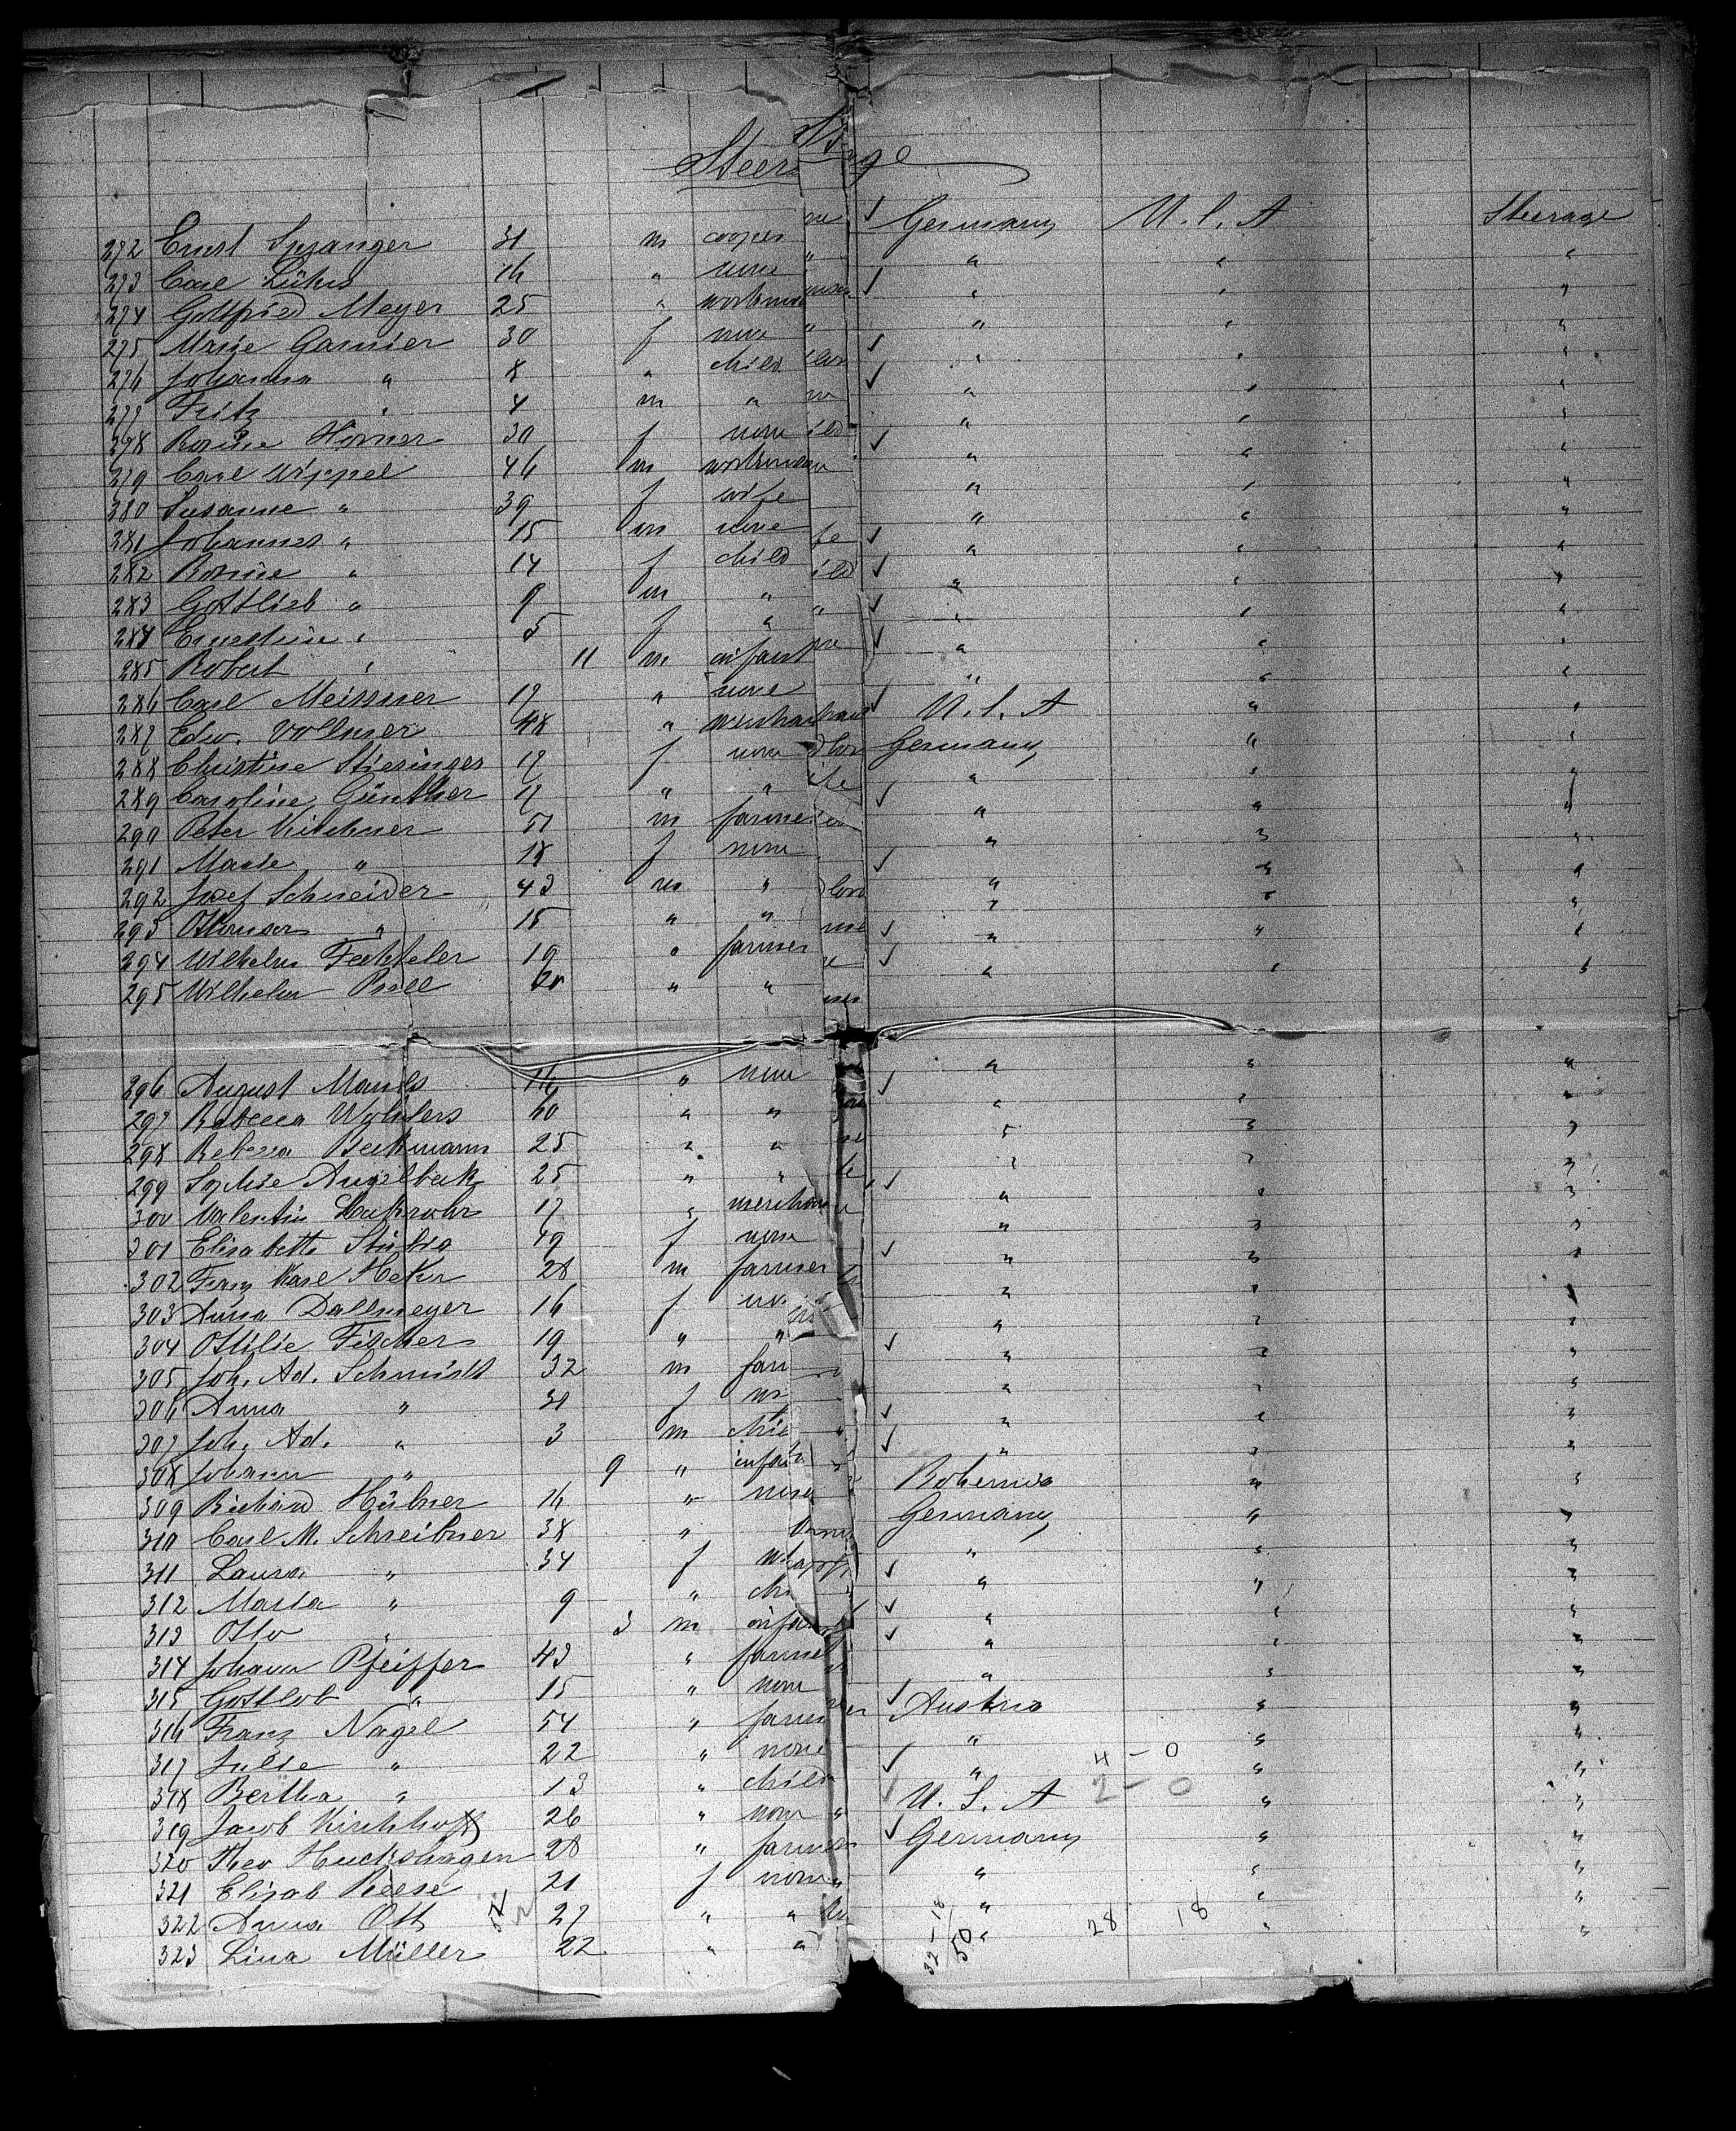 Steerage
272 Ernst Spranger 31 m cooper Germany U. S. A Steerage
273 Carl Lührs 16 " none " " "
274 Gottfried Meyer 25 " workman " " "
275 Marie Garnier 30 f none " " "
276 Johanna " 8 " child " " "
277 Fritz " 4 m " " " "
278 Rosine Horner 30 f none " " "
279 Carl Wippel 46 m workman " " "
380 Susanne " 39 f wife " " "
281 Johannes " 15 m none " " "
282 Rosine " 14 f child " " "
283 Gottlieb " 9 m " " " "
284 Ernestine " 5 f " " " "
285 Robert " 11 m infant " " "
286 Carl Meissner 17 " none " " "
287 Edw. Vollmer 48 " merchant U. S. A " "
288 Christine Stiesinger 17 f none Germany " "
289 Caroline Günther 17 " " " " "
290 Peter Kirchner 51 m farmer " " "
291 Marie " 18 f none " " "
292 Josef Schneider 43 m " " " "
293 " 15 " " " " "
294 Wilhelm Fechteler 19 " farmer " " "
295 Wilhelm 20 " " " " "
296 August 16 " none " " "
297 Rebecca Wohlers 20 " " " " "
298 Rebecca Beckmann 25 " " " " "
299 Sophie Angelbeck 25 " " " " "
300 Valentin 17 " merchant " " "
301 Elisabeth 49 f none " " "
302 Franz Karl Heker 28 m farmer " " "
303 Anna Dallmeyer 16 f " " "
304 Ottilie Fischer 19 " " " " "
305 Joh. Ad. Schmidt 32 m " " "
306 Anna " 31 f " " "
307 Joh. Ad. " 3 m " " "
308 Johann " 9 " " " "
309 Richard Hübner 16 " none Bohemia " "
310 Carl M. Schreibner 38 " Germany " "
311 Laura " 34 f " " "
312 Marta " 9 " " " "
313 Otto " 3 m " " "
314 Johann Pfeiffer 43 " farmer " " "
315 Gottlob " 15 " none " " "
316 Franz Nagel 54 " farmer Austria " "
317 Julie " 22 " none " " "
4 - 0
318 Bertha " 13 " child " " "
2 - 0
319 Jacob Kirchhoff 26 " none U. S. A " "
320 Theo Huckshagen 28 " farmer Germany " "
321 Elisab Reese 21 f none " " "
322 Anna Ott 27 " " " " "
28 18
323 Lina Müller 22 " " " " "
32-18
50